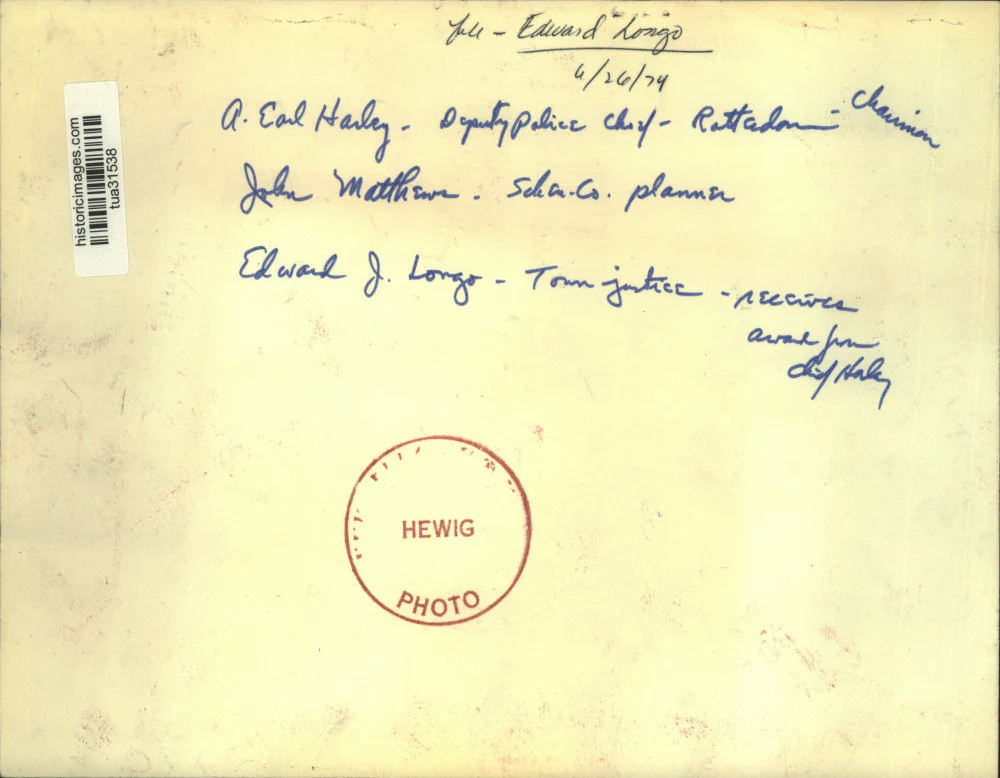 file - Edward Longo
6/26/74
A. Earl Harley - Deputy Police Chief - Rotterdam - Chairman
John Matthews - Schen. Co. planner
Edward J. Longo - Town justice - receives
award from
chief Harley
historicimages.com
tua31538
HEWIG
PHOTO